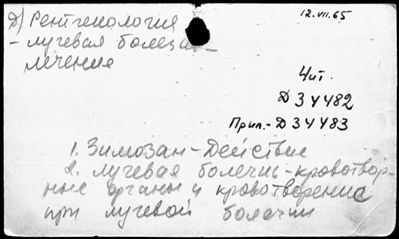 д) Рентгенология
12.VII.65
- лучевая болезнь -
лечение
Чит.
Д 34482
Прил.- Д 34483
1. Зимозан - Действие
2. лучевая болезнь - кроветвор-
ные органы и кроветворение
при лучевой болезни